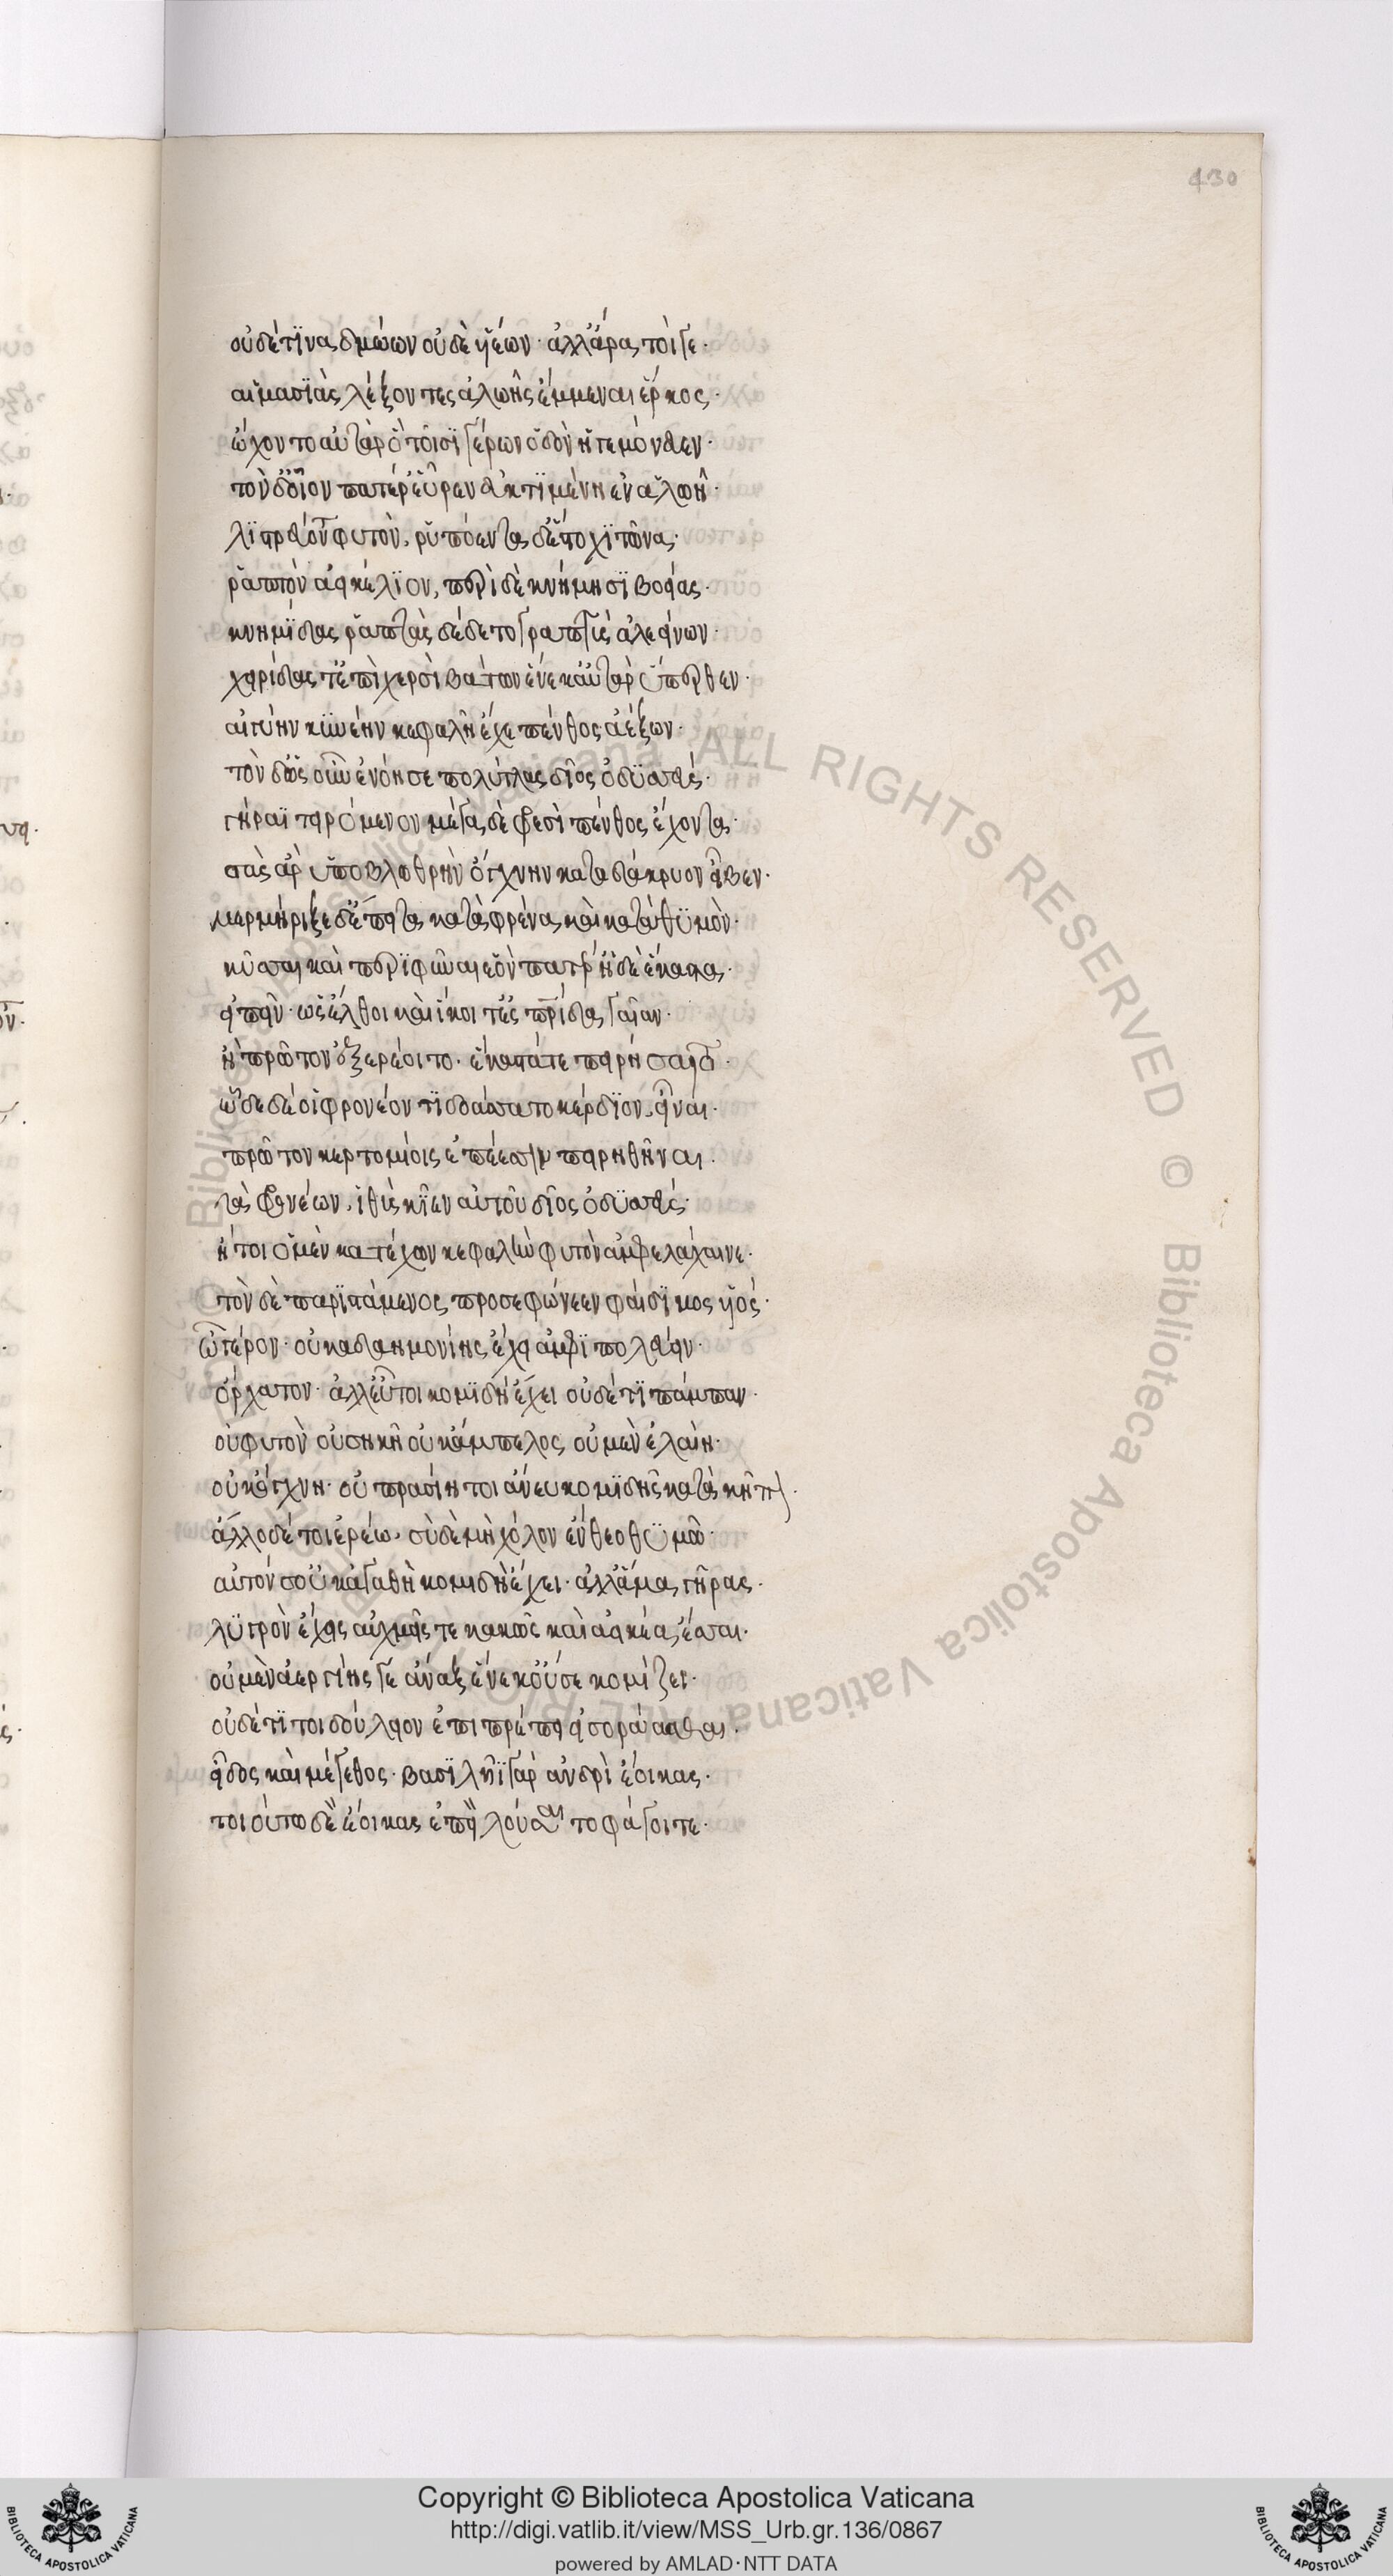 430
οὐδέ τινα δμώων οὐδὲ υἱέων· ἀλλ' ἄρα τοίγε·
αἱμασιὰς λέξοντες ἀλωῆς ἔμμεναι ἕρκος·
ὤχοντο αὐτὰρ ὃ τοῖσι γέρων ὁδὸν ἡγεμόνευεν·
τὸν δ' οἶον πατέρ' εὗρεν ἐυκτιμένη ἐν ἀλωῆ·
λιστρεύοντα φυτὸν, ῥυπόεντα δὲ ἕστο χιτῶνα·
ῥαπτὸν ἀεικέλιον, περὶ δὲ κνήμησι βοείας·
κνημίδας ῥαπτὰς δέδετο γραπτῦς ἀλεείνων·
χειρίδας τ' ἐπὶ χερσὶ βάτων ἕνεκ' αὐτὰρ ὕπερθεν·
αἰγείην κυνέην κεφαλῆ ἔχε πένθος ἀέξων·
τὸν δ' ὡς οὖν ἐνόησε πολύτλας δῖος ὀδυσσεύς·
γήραϊ τειρόμενον μέγα δὲ φρεσὶ πένθος ἔχοντα·
στὰς ἄρ' ὑπὸ βλωθρὴν ὄγχνην κατα δάκρυον εἶβεν·
μερμήριξε δ' ἔπειτα κατὰ φρένα καὶ κατὰ θυμὸν·
κύσσαι καὶ περιφῦναι ἑὸν πατέρ' ἠδὲ ἕκαστα·
εἰπεῖν· ὡς ἔλθοι καὶ ἵκοιτ' ἐς πατρίδα γαῖαν·
ἢ πρῶτον ἐξερέοιτο· ἕκαστά τε πειρήσαιτο·
ὧδε δέ οἱ φρονέοντι δοάσσατο κέρδιον, εἶναι·
πρῶτον κερτομίοις ἐπέεσσιν πειρηθῆναι·
τὰ φρονέων, ἰθὺς κίεν αὐτοῦ δῖος ὀδυσσεύς·
ἤτοι ὁ μὲν κατέχων κεφαλὴν φυτὸν ἀμφελάχαινε·
τὸν δὲ παριστάμενος προσεφώνεεν φαίδιμος υἱός·
ὦ γέρον· οὐκ ἀδαημονίης ἔχει ἀμφιπολεύειν·
ὄρχατον· ἀλλ' εὖ τοι κομιδὴ ἔχει οὐδέ τι πάμπαν·
οὐ φυτὸν οὐ συκῆ οὐκ ἄμπελος, οὐ μὲν ἐλαίη·
οὐκ ὄγχνη· οὐ πρασίη τοι ἄνευ κομιδῆς κατὰ κῆπον·
ἄλλο δέ τοι ἐρέω, σὺ δὲ μὴ χόλον ἔνθεο θυμῶ·
αὐτόν σ' οὐκ ἀγαθὴ κομιδὴ ἔχει· ἀλλ' ἅμα γῆρας·
λυγρὸν ἔχεις αὐχμεῖς τε κακῶς καὶ ἀεικέα ἕσσαι·
οὐ μὲν ἀεργίης γε ἄναξ ἕνεκ' οὔ σε κομίζει·
οὐδέ τί τοι δούλειον ἐπιπρέπει εἰσοράασθαι·
εἶδος καὶ μέγεθος· βασιλῆϊ γὰρ ἀνδρὶ ἔοικας·
τοιούτω δὲ ἔοικας ἐπεὶ λούσαιτο φάγοι τε·
Copyright © Biblioteca Apostolica Vaticana
http://digi.vatlib.it/view/MSS_Urb.gr.136/0867
powered by AMLAD·NTT DATA